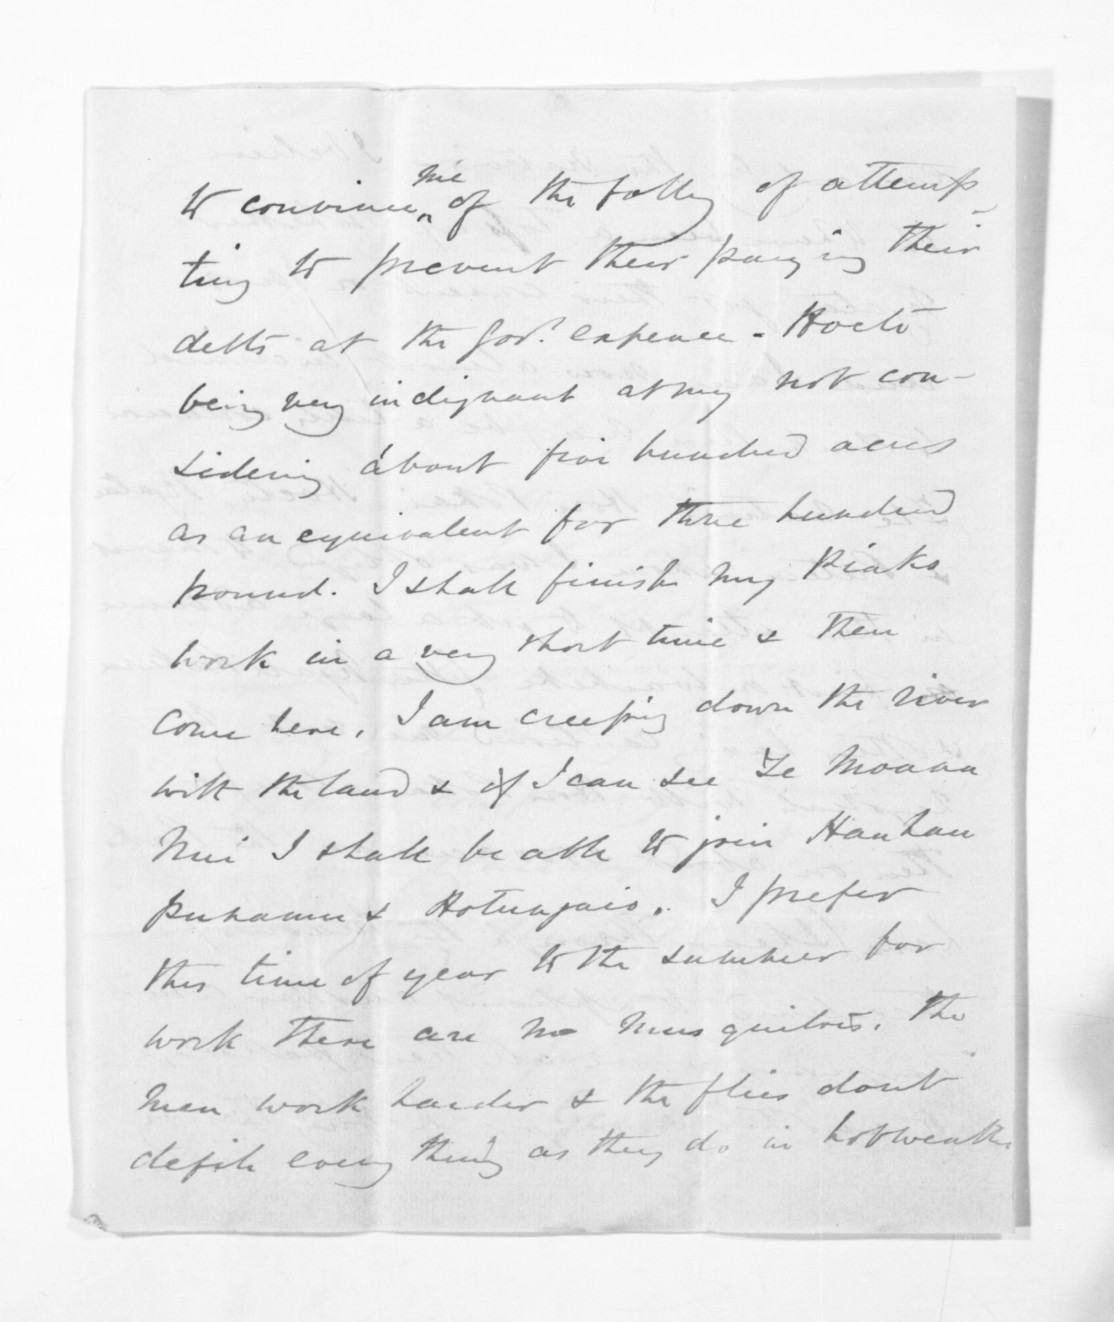 to convince me of the folly of attemp-
ting to prevent their paying their
debts at the Govt. expence - Hoete
being very indignant at my not con-
sidering about five hundred acres
as an equivalent for three hundred
pound. I shall finish my Piako
work in a very short time & then
come here, I am creeping down the river
with the land & if I can see Te Moana
Nui I shall be able to join Hauhau
puhanu & Hotungaio. I prefer
this time of year to the summer for
work there are no musquitoes. the
men work harder & the flies dont
defile every thing as they do in hot weather